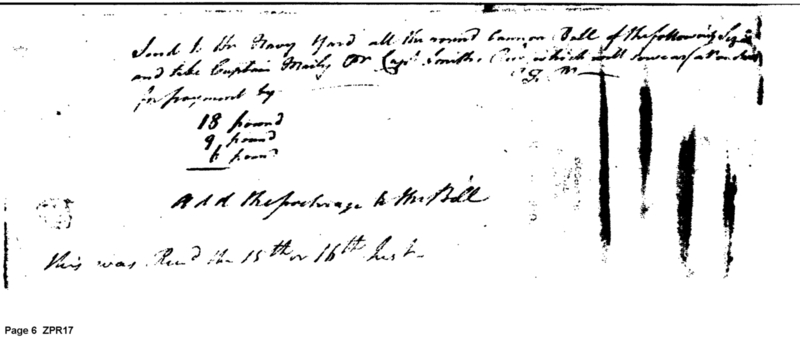 Send to the Navy Yard all the round Cannon Ball of the following
and take Captain or Capt Smiths which will
for payment by
18 pound
9 pound
6 pound
Add the portrage to the Bill
this was Recd the 15th or 16th Inst
Page 6 ZPR17